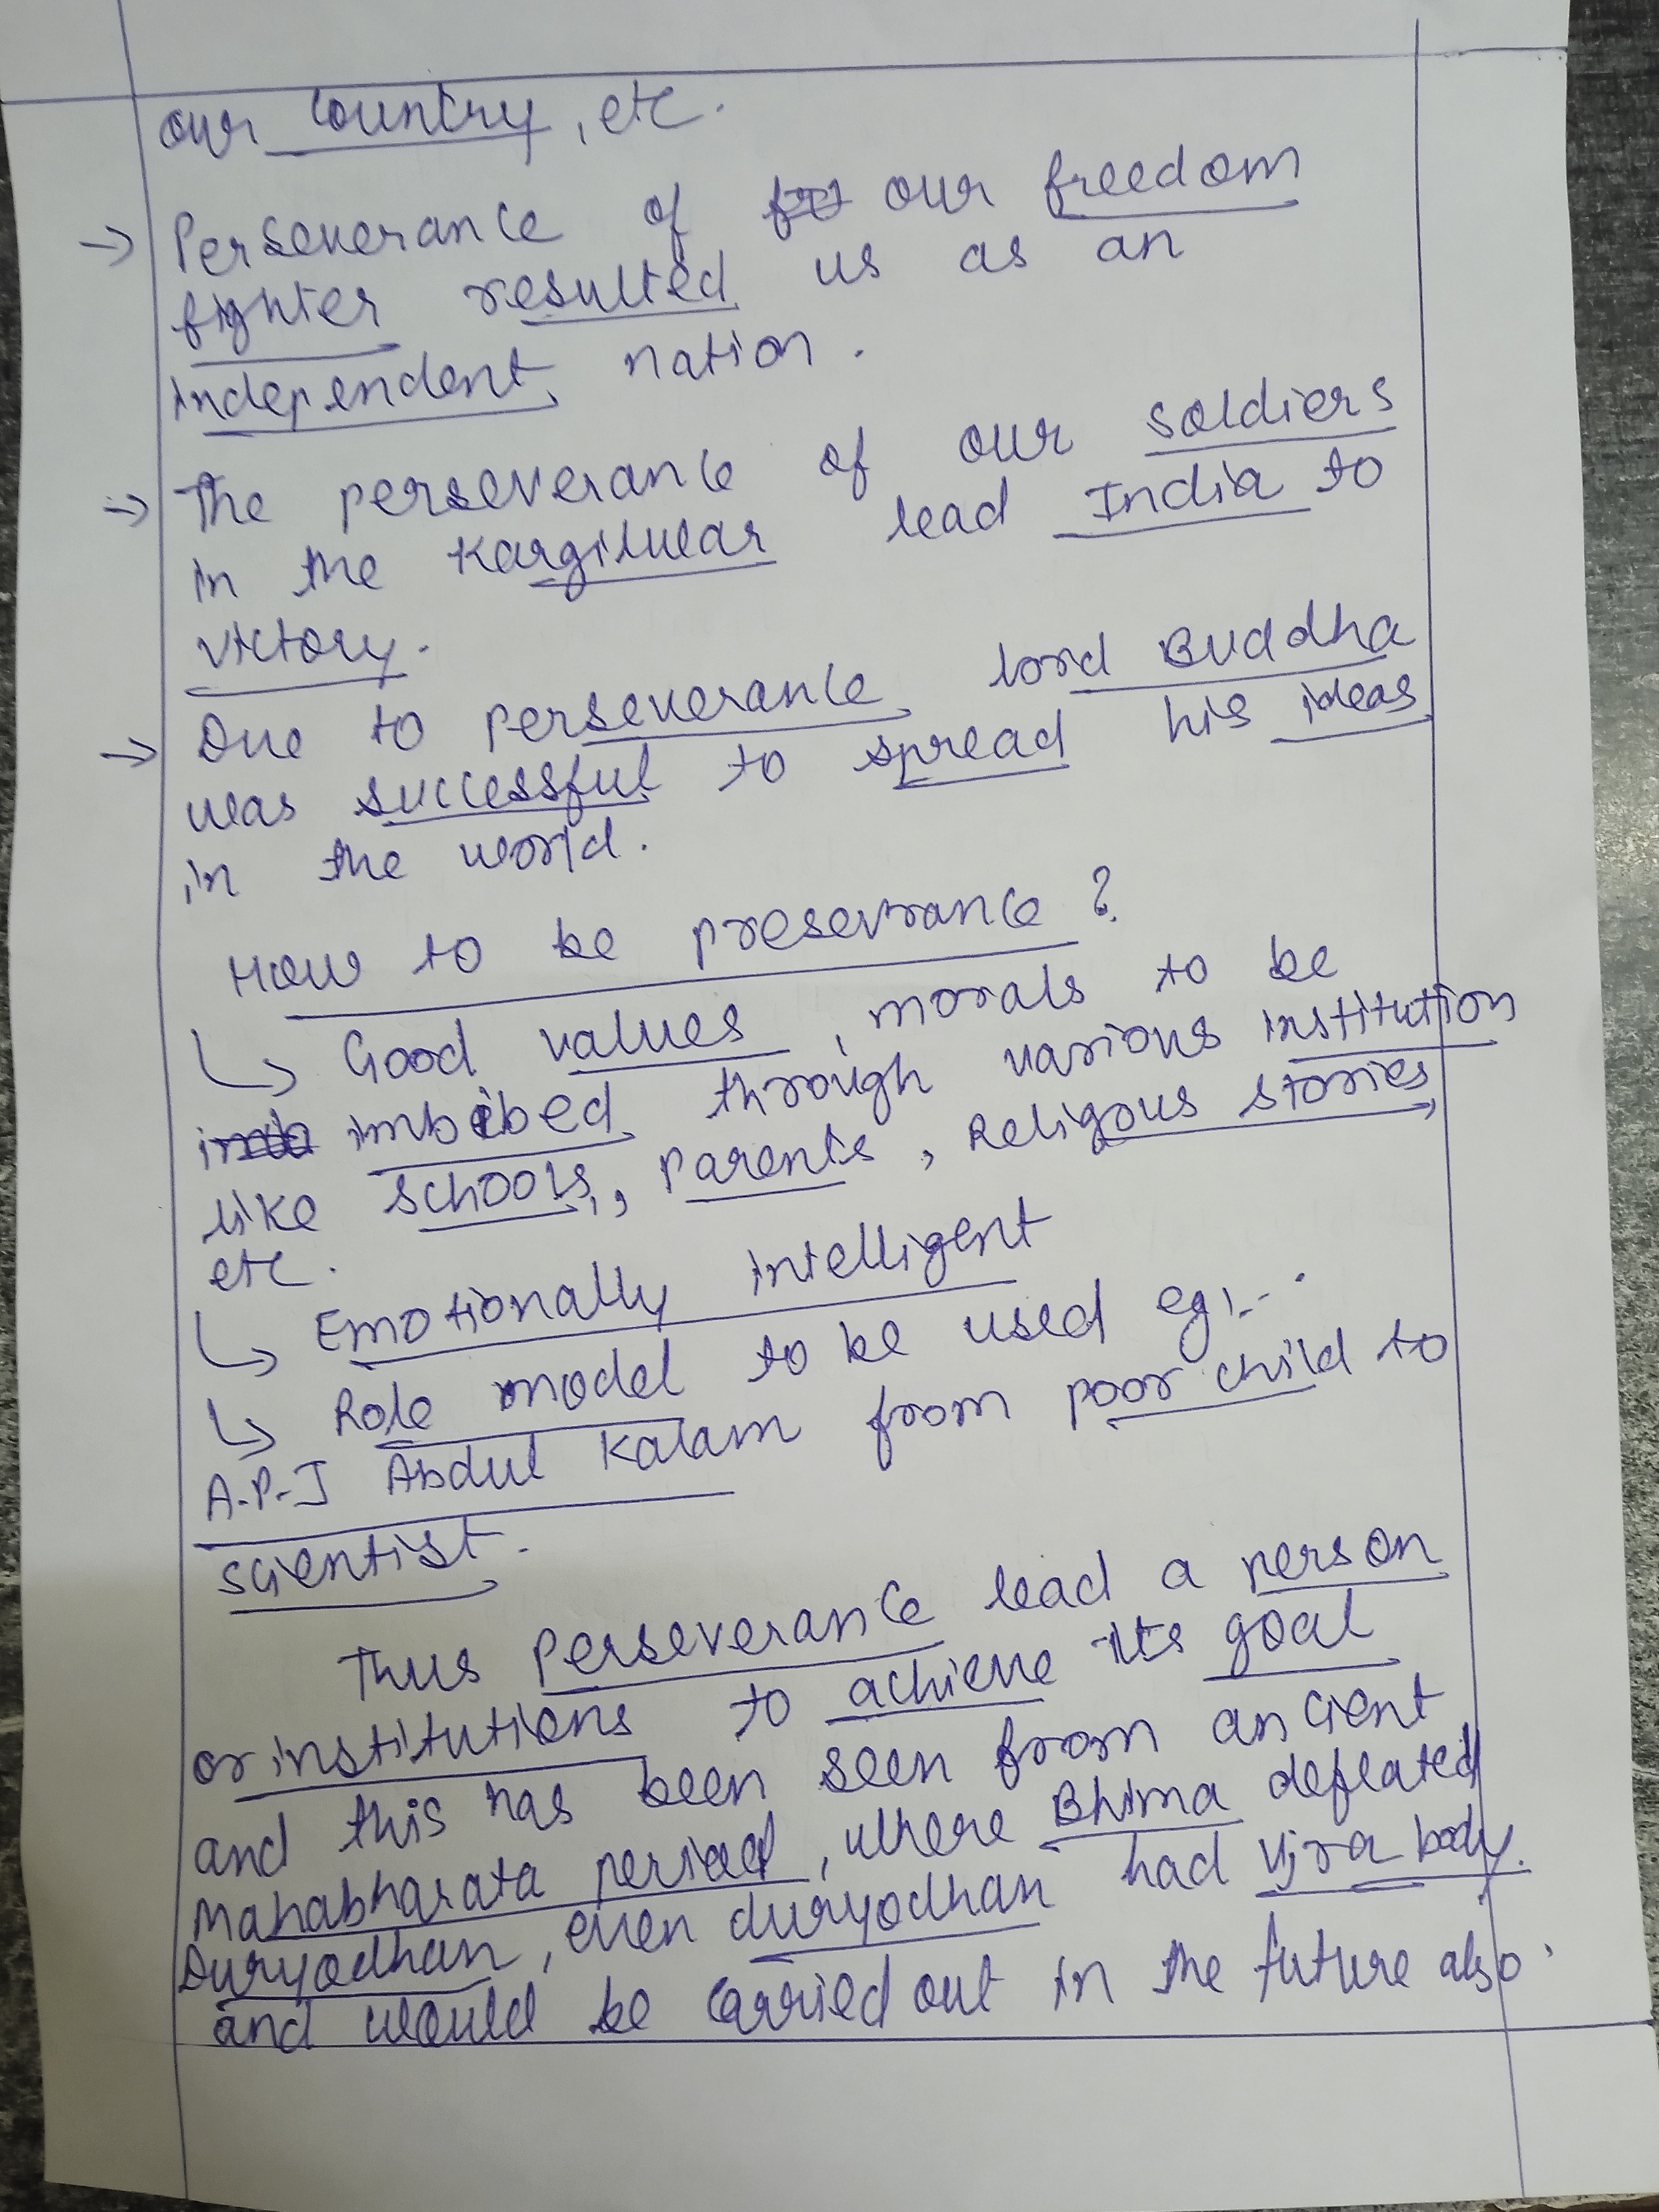 our country, etc.
→ Perseverance of our freedom
fighter resulted us as an
independent nation.
→ The perseverance of our soldiers
in the Kargilwar lead India to
victory.
→ Due to perseverance, lord Buddha
was successful to spread his ideas
in the world.
How to be preseverance?
↳ Good values, morals to be
imbibed through various institution
like schools, parents, Religous stories,
etc.
↳ Emotionally intelligent
↳ Role model to be used eg:-
A.P.J Abdul Kalam from poor child to
scientist.
Thus perseverance lead a person
or institutions to achieve its goal
and this has been seen from ancient
Mahabharata period, where Bhima defeated
Duryodhan, even duryodhan had Vjra body.
and would be carried out in the future also.